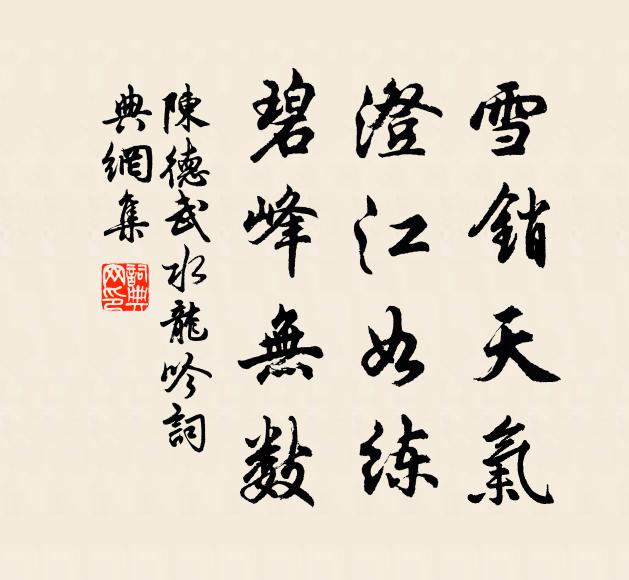 雪銷天氣
澄江如练
碧峰無数
陳德武水龍吟詞
典網集
詞典网印